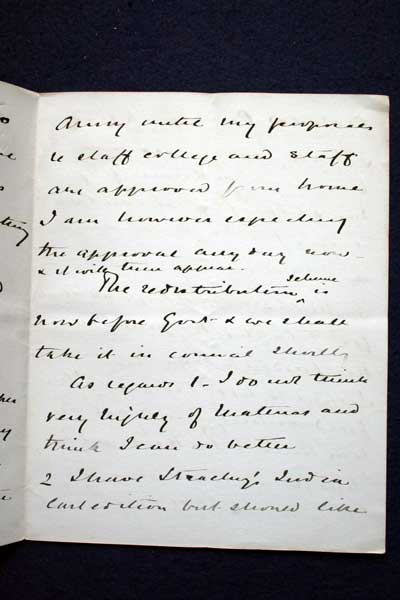 Army until my proposals
re staff college and staff
are approved from home
I am however expecting
the approval any day now -
& it will then appear.
The redistribution scheme is
now before Govt & we shall
take it in council shortly
As regards 1 - I do not think
very highly of Maternas and
think I can do better
2 I have Strachey's India
last edition but should like